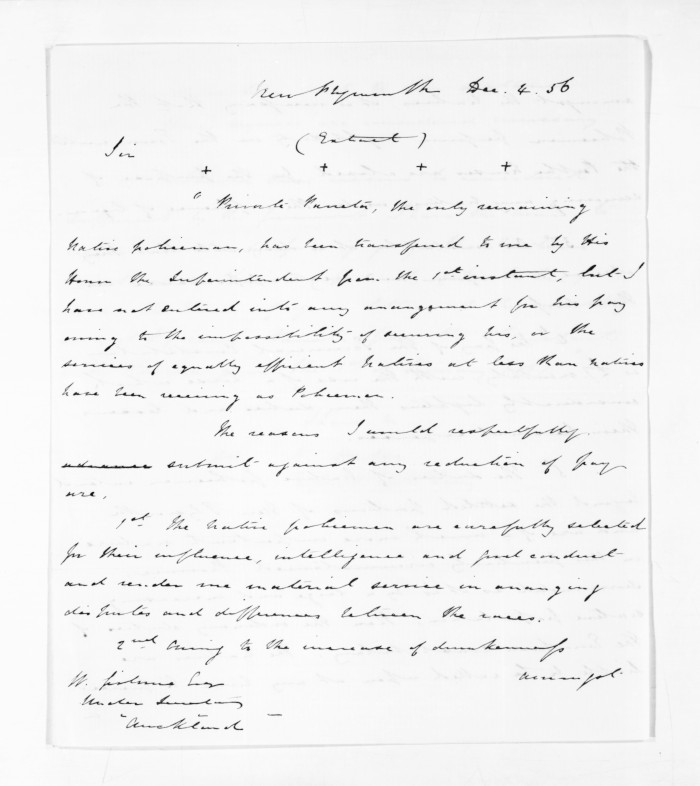 New Plymouth Dec. 4. 56
(Extract)
Sir
+ + + +
"Private Taneta, the only remaining
Native policeman, has been transferred to me by His
Honor the Superintendent from the 1st instant, but I
have not entered into any arrangement for his pay
owing to the impossibility of securing his, or the
services of equally efficient Natives at less than natives
have been receiving as Policemen.
The reasons I would respectfully
advance submit against any reduction of pay
are,
1st The native policemen are carefully selected
for their influence, intelligence and good conduct
and render me material service in arranging
disputes and differences between the races.
2nd Owing to the increase of drunkenness
amongst
W. Esq
Under Secretary
"Auckland"